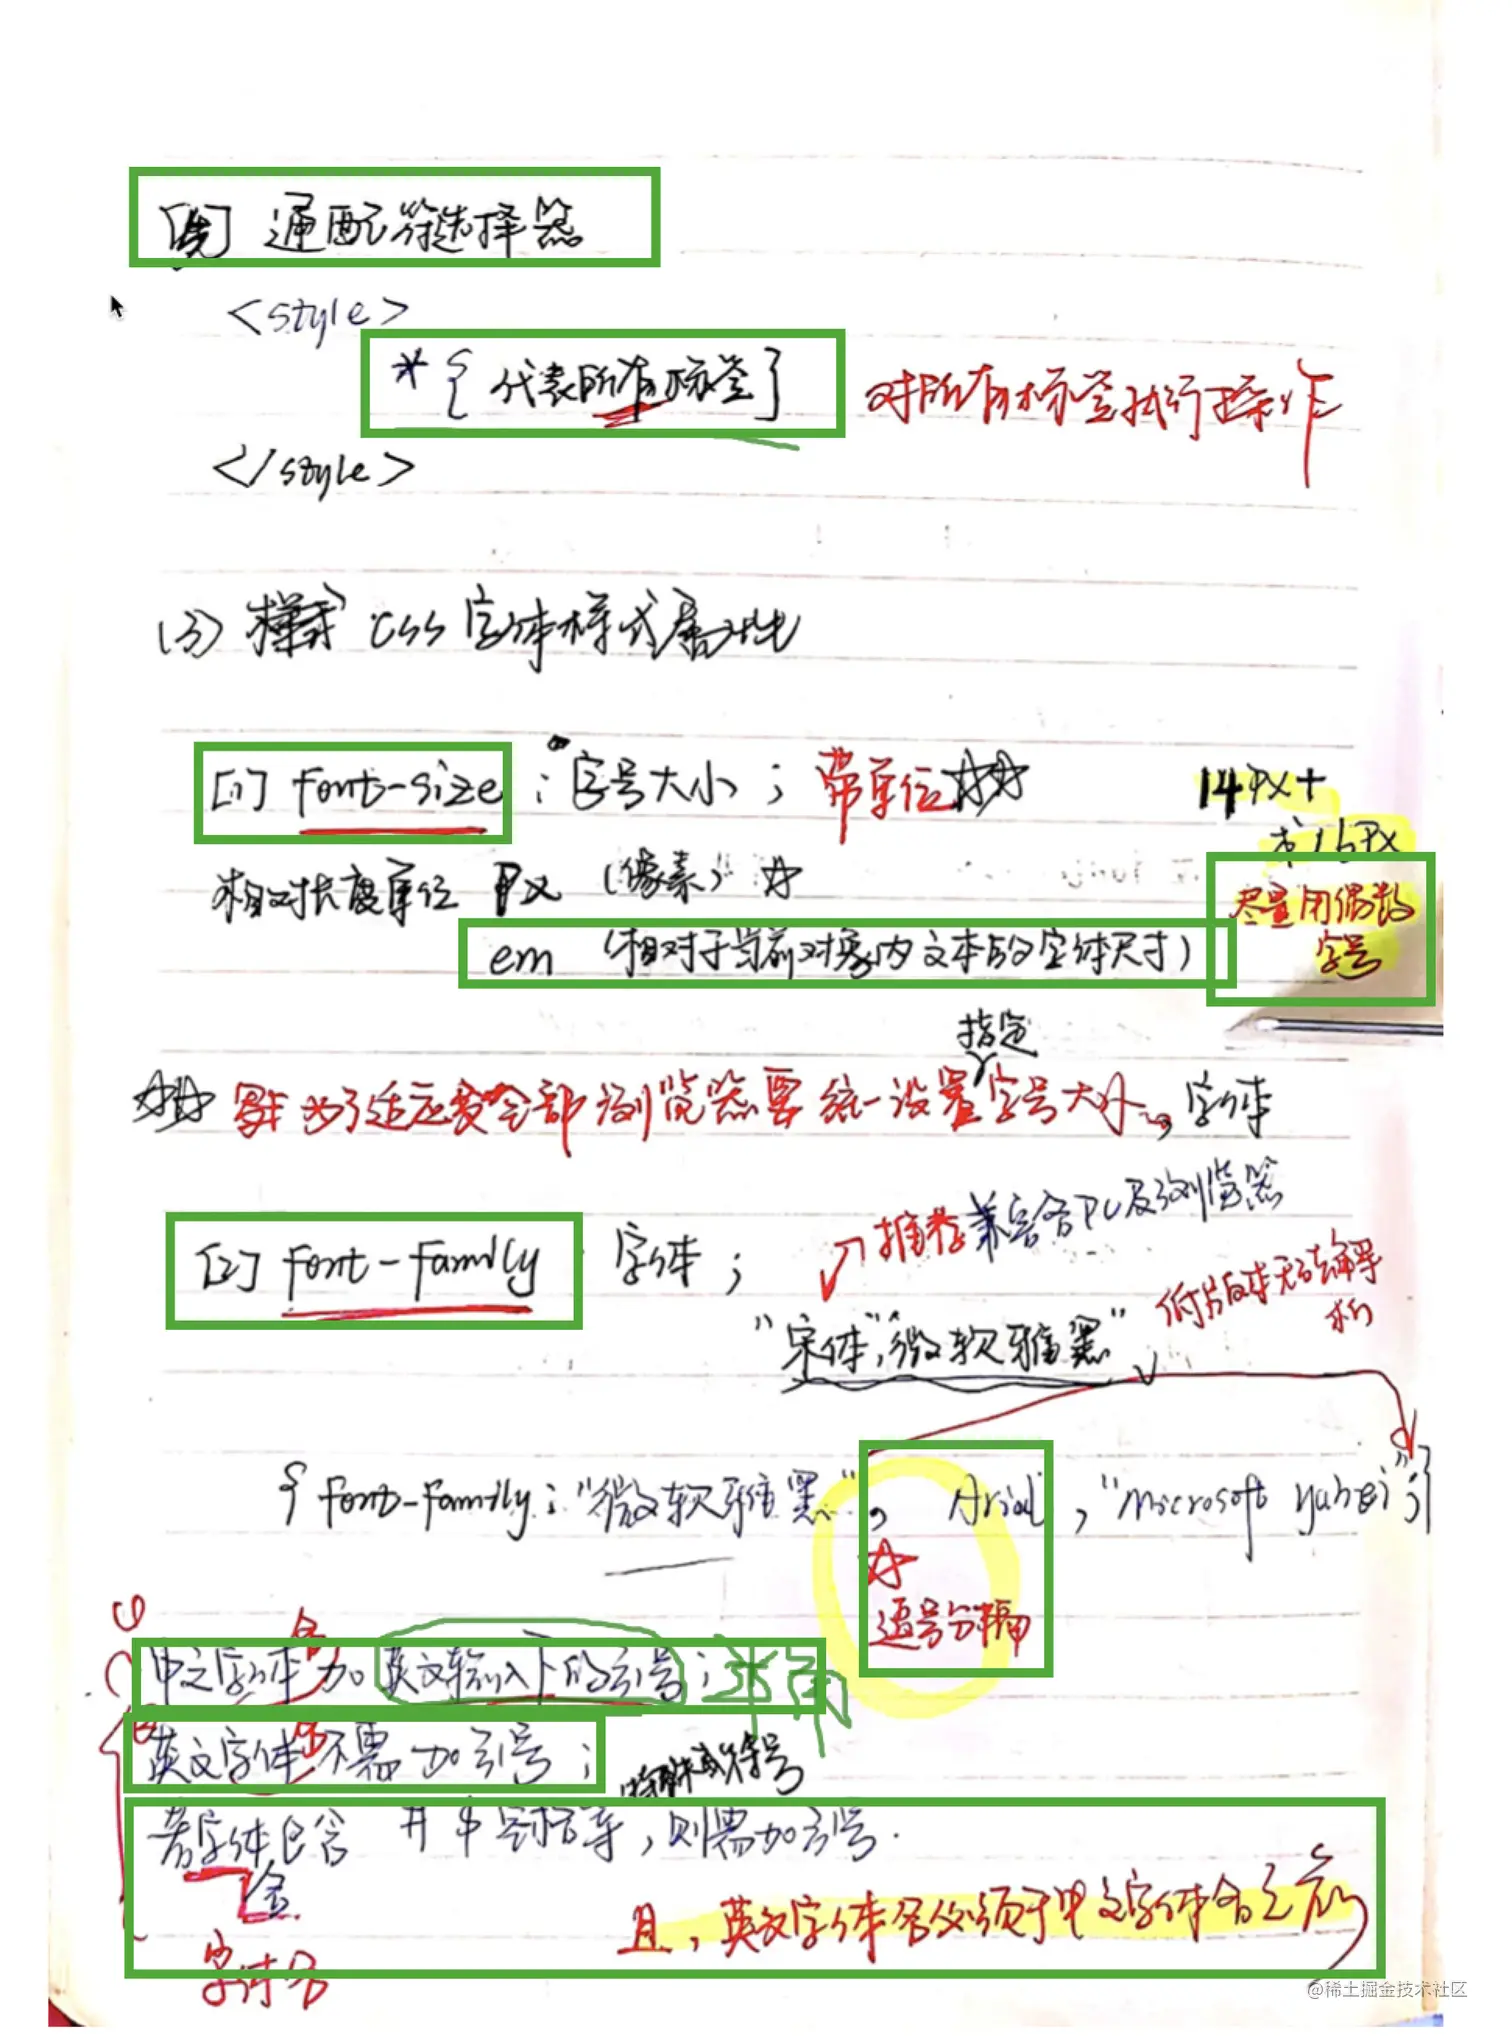 通配符选择器
<style>
*{ 代表所有标签} 对所有标签执行操作
</style>
(3) CSS 字体样式属性
[1] Font-size : 字号大小 ; 带单位 14px+
或16px
相对长度单位 px (像素) 尽量用偶数
字号
em (相对于当前对象内文本的字体尺寸)
指定
为了适应全部浏览器要统一设置字号大小, 字体
推荐 兼容各PC及浏览器
[2] Font-Family 字体 ; 低版本无法解
析
"宋体","微软雅黑"
{ Font-Family : "微软雅黑", Arial , "Microsoft yahei";}
逗号分隔
中文字体加英文输入下的引号;
英文字体不需加引号 ;
特殊或符号
若字体包含 # 空格等, 则需加引号.
且, 英文字体名必须于中文字体名之前
@稀土掘金技术社区